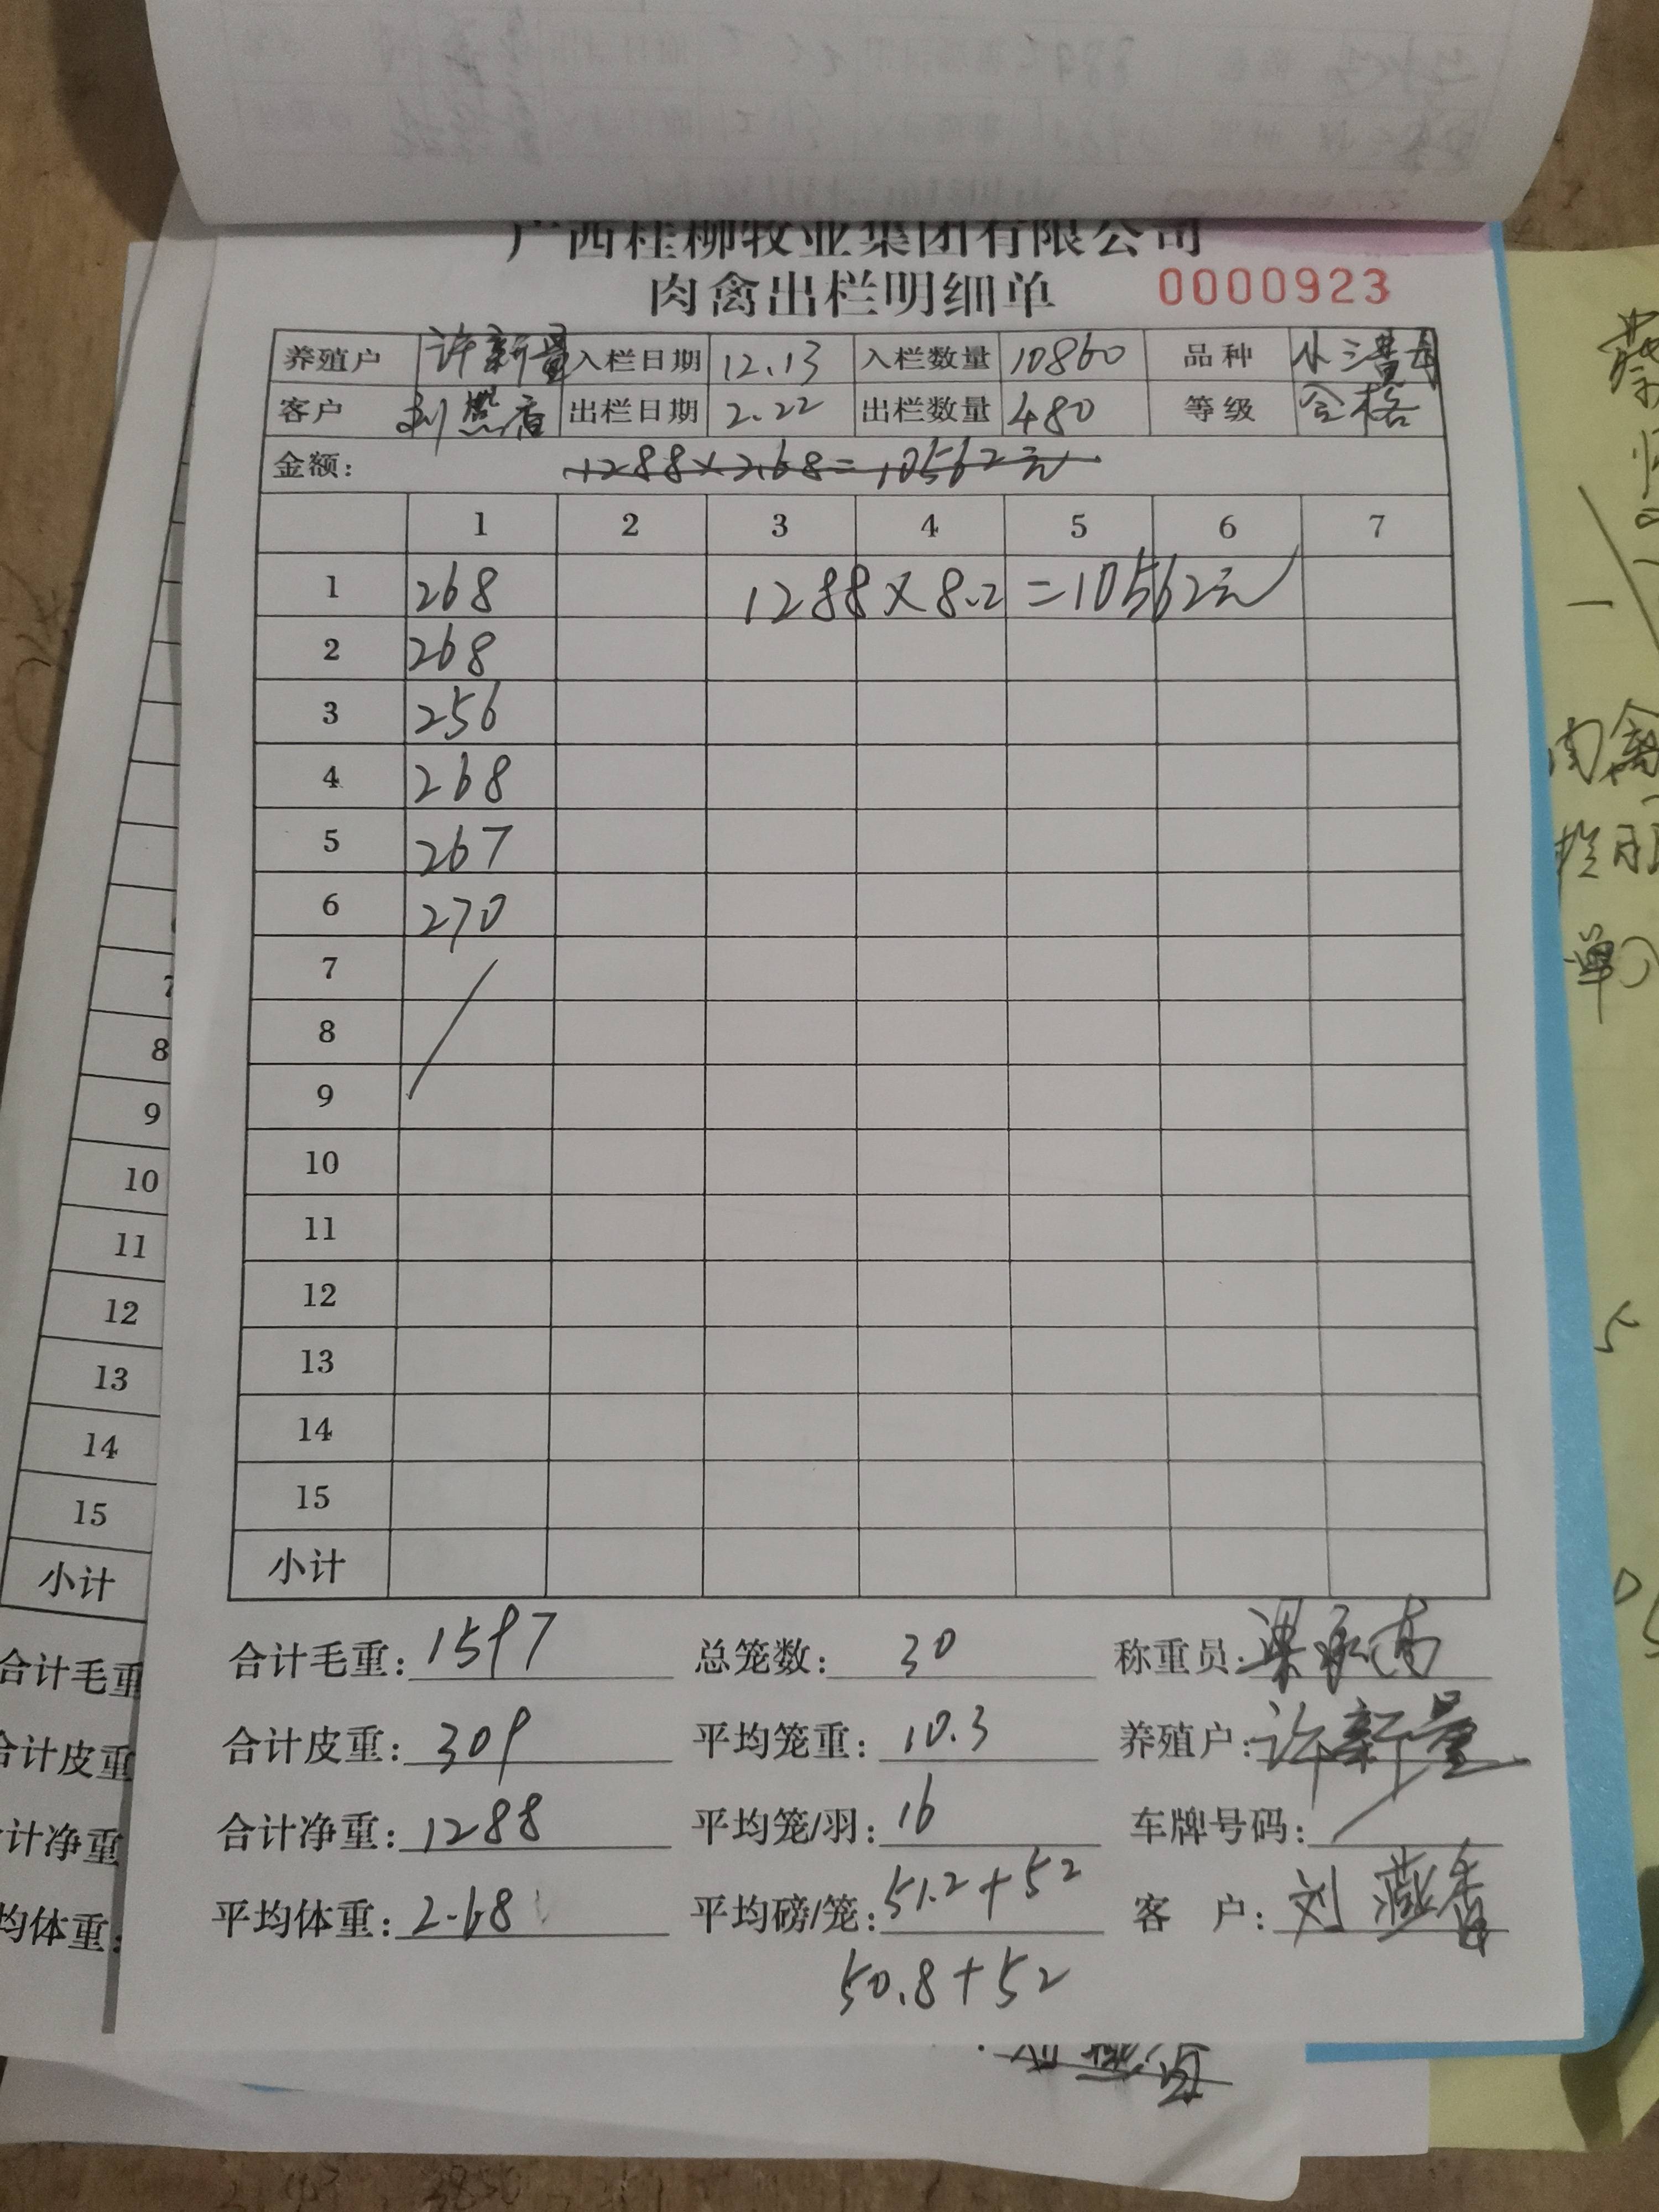 广西桂柳牧业集团有限公司
肉禽出栏明细单 0000923
养殖户 许新量 入栏日期 12.13 入栏数量 10860 品种 小三黄母
客户 刘燕香 出栏日期 2.22 出栏数量 480 等级 合格
金额: 1288×2.68=10562元
1 2 3 4 5 6 7
1 268 1288×8.2=10562元
2 268
3 256
4 268
5 267
6 270
7
8
9
10
11
12
13
14
15
小计
合计毛重: 1597 总笼数: 30 称重员:
合计皮重: 309 平均笼重: 10.3 养殖户: 许新量
合计净重: 1288 平均笼/羽: 16 车牌号码:
平均体重: 2.68 平均磅/笼: 51.2+52 客 户: 刘燕香
50.8+52
7
8
9
10
11
12
13
14
15
小计
合计毛重
合计皮重
计净重
均体重:
肉禽
单)
5